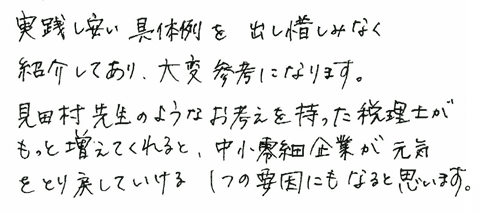 実践し安い具体例を 出し惜しみなく
紹介してあり、大変参考になります。
見田村先生のようなお考えを持った税理士が
もっと増えてくれると、中小零細企業が元気
をとり戻していける 1つの要因にもなると思います。